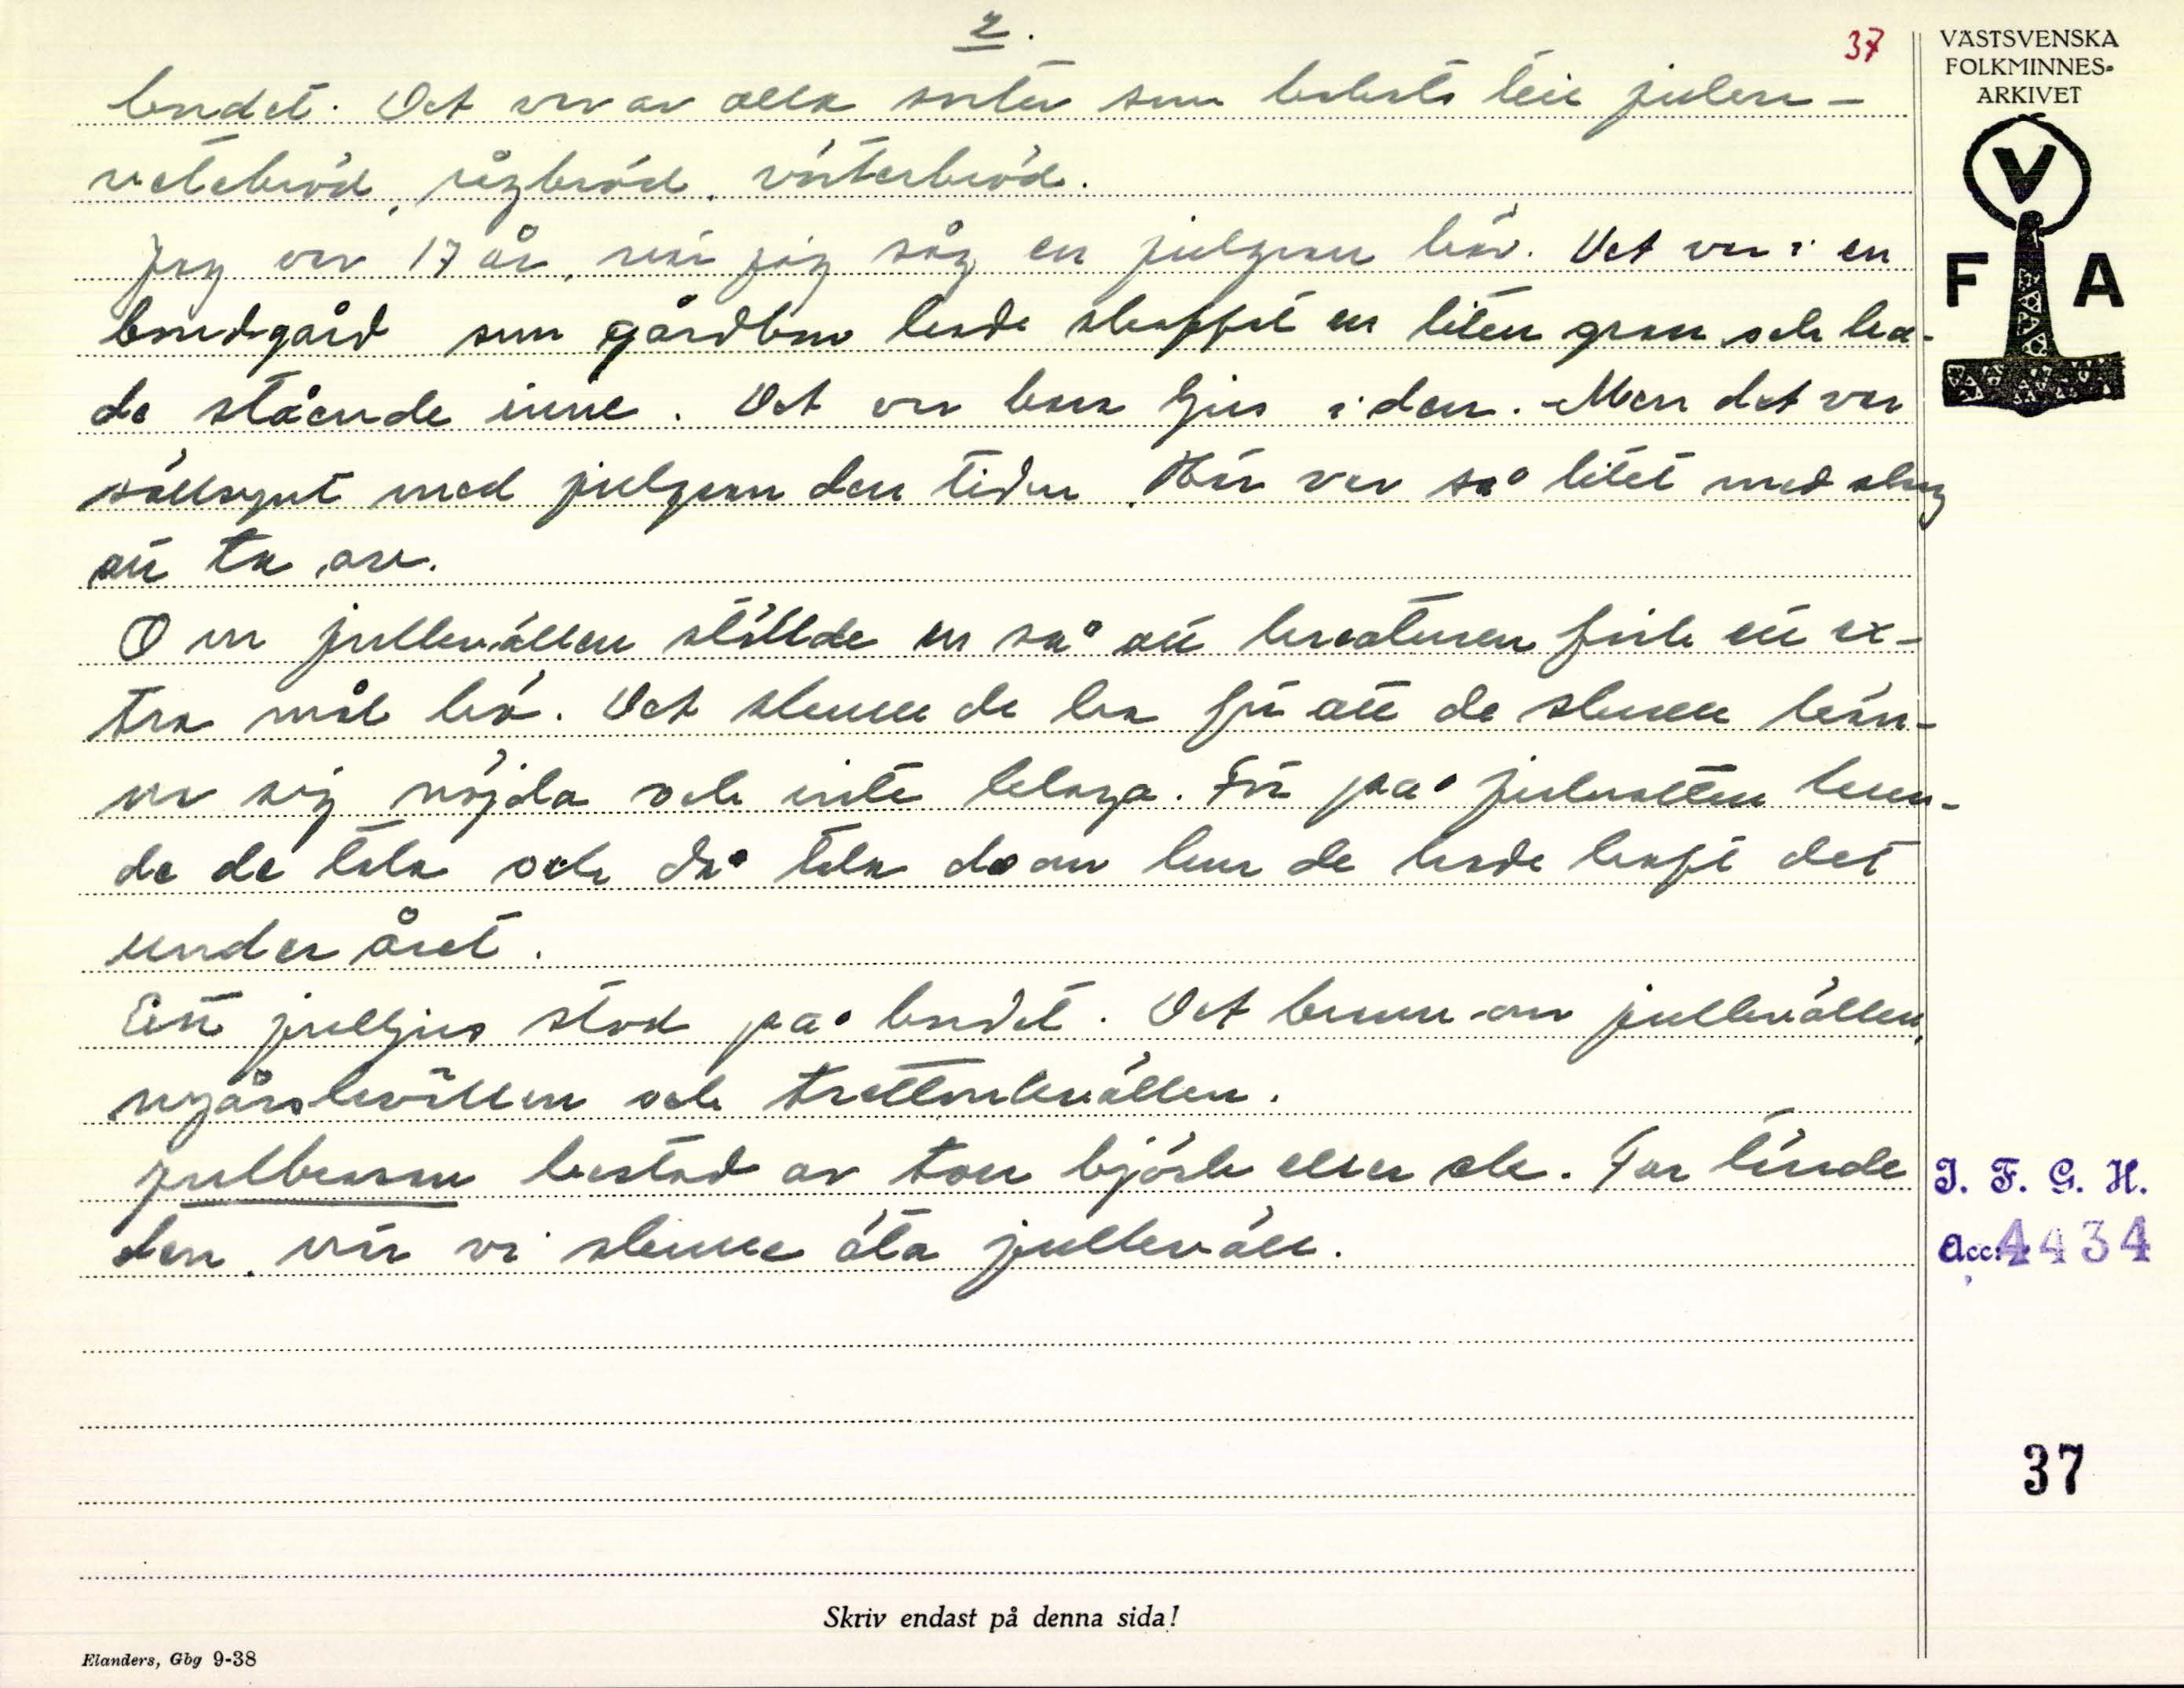 2.
37
VÄSTSVENSKA
FOLKMINNES-
ARKIVET
V
F A
bordet. Det var av alla sorter som bakats till julen -
vetebröd, rågbröd, vörterbröd.
Jag var 17 år, när jag såg en julgran här. Det var i en
bondgård som gårdbor hade skaffat en liten gran och ha-
de stående inne. Det var bara ljus i den. Men det var
sällsynt med julgran den tiden. Här var så litet med skog
att ta av.
Om julkvällen ställde en så att kreaturen fick ett ex-
tra mål hö. Det skulle de ha för att de skulle kän-
na sig nöjda och inte klaga. För på julnatten kun-
de de tala och då tala de om hur de hade haft det
under året.
Ett julljus stod på bordet. Det brann om julkvällen,
nyårskvällen och trettonkvällen.
Julbrasan bestod av torr björk eller ek. Far tände
den, när vi skulle äta julkväll.
I. F. G. H.
Acc. 4434
37
Skriv endast på denna sida!
Elanders, Gbg 9-38